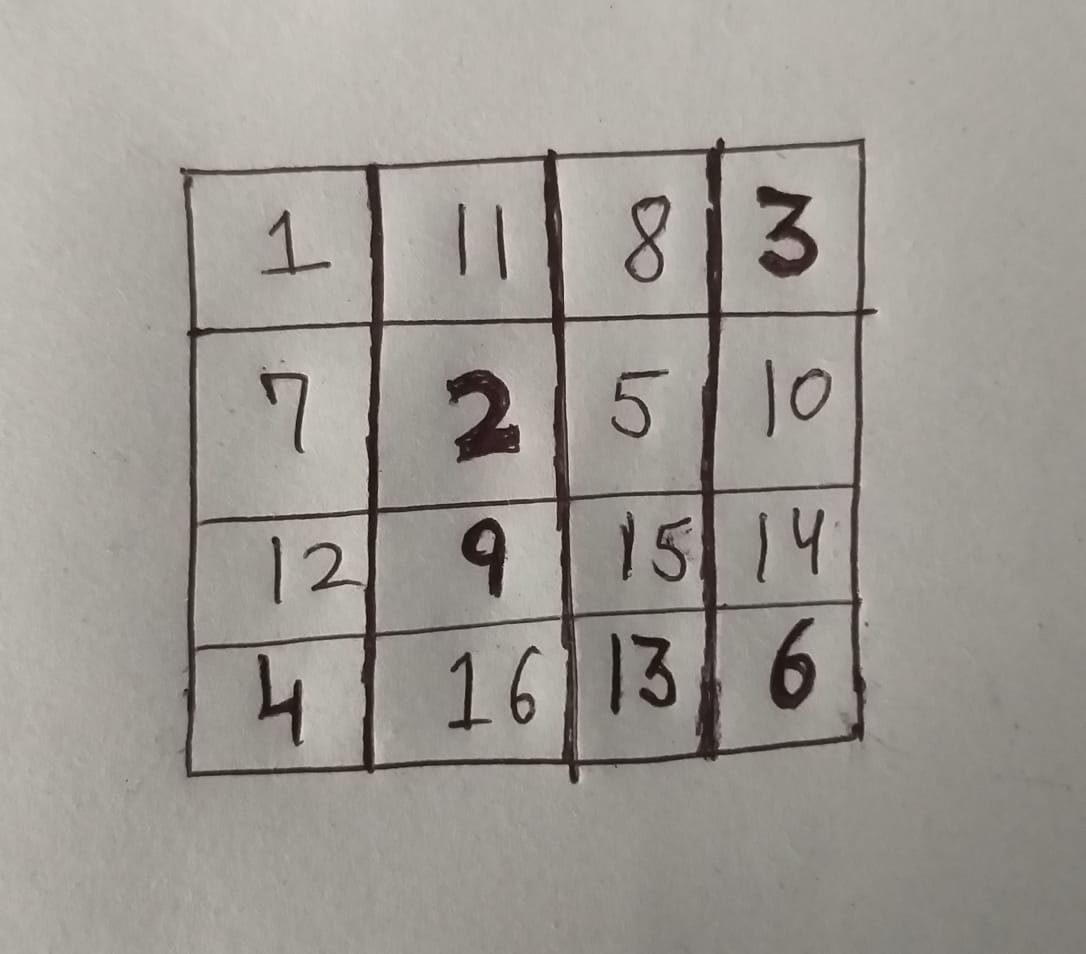 1 11 8 3
7 2 5 10
12 9 15 14
4 16 13 6